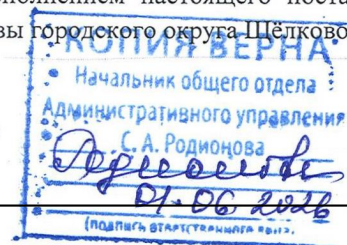 олнением настоящего поста
вы городского округа Щёлково
КОПИЯ ВЕРНА
Начальник общего отдела
Административного управления
С. А. Родионова
Родионова
01.06.2026
(подпись ответственного лица)